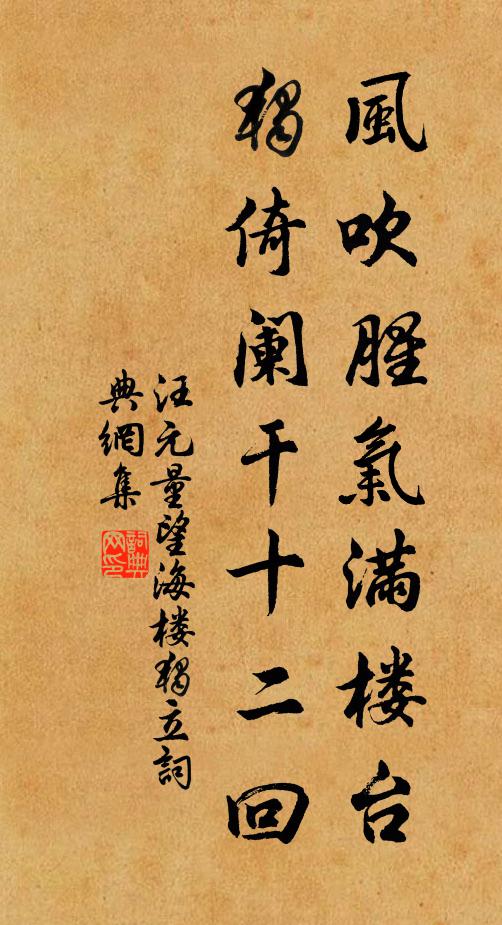 風吹腥氣滿楼台
獨倚闌干十二回
汪元量望海楼獨立詞
典網集
詞典網印